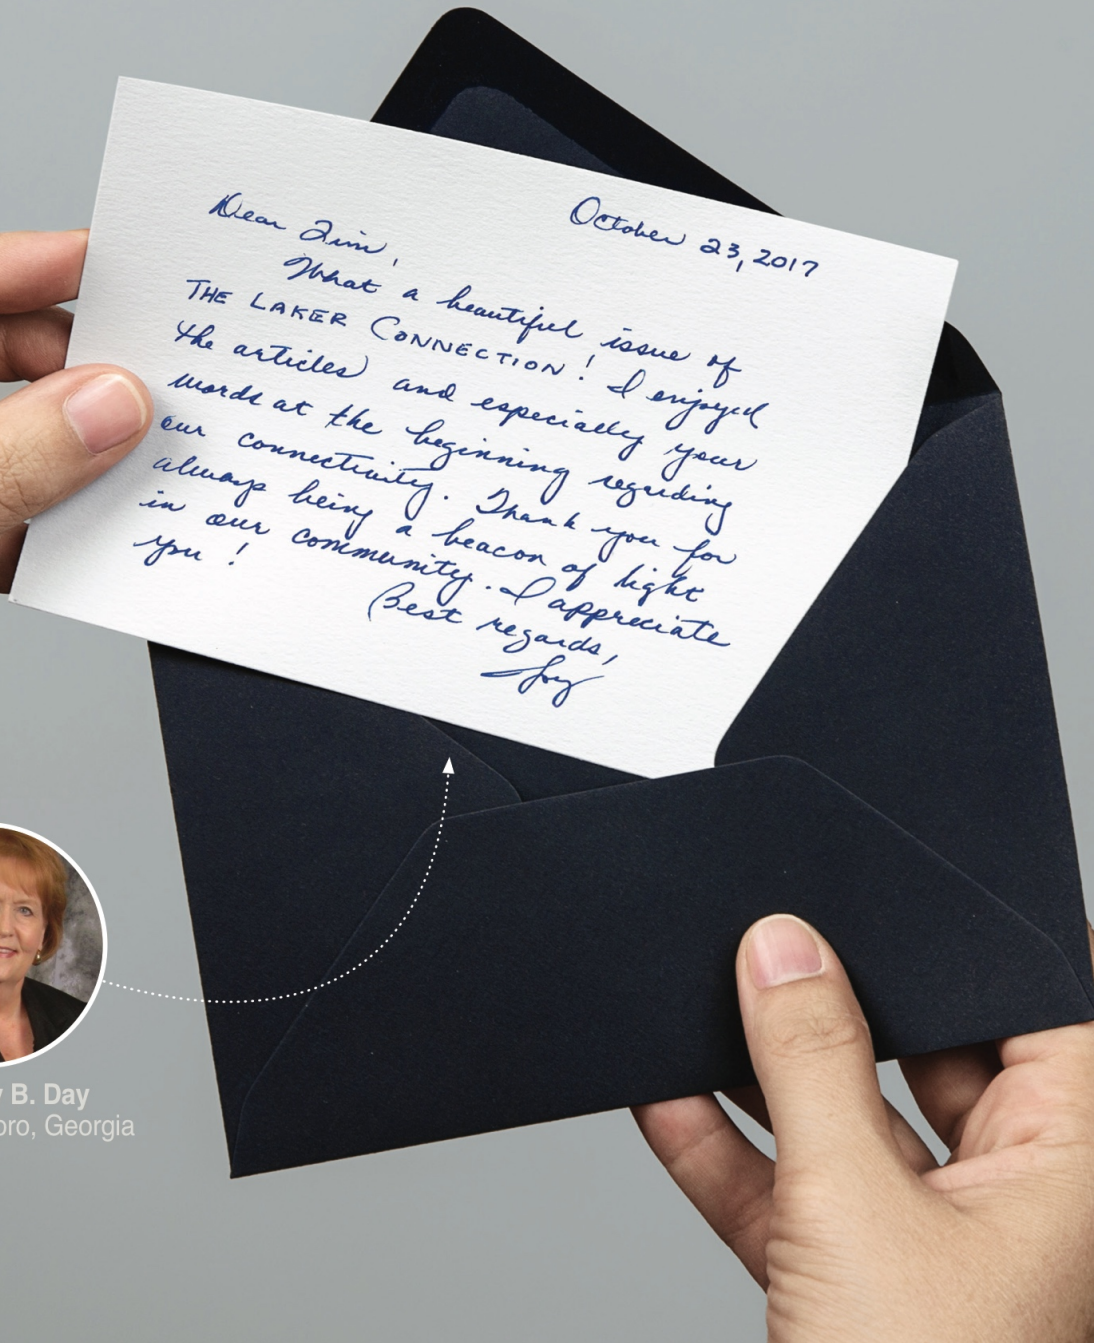 October 23, 2017
Dear Tim,
What a beautiful issue of
THE LAKER CONNECTION! I enjoyed
the articles and especially your
words at the beginning regarding
our connectivity. Thank you for
always being a beacon of light
in our community. I appreciate
you!
Best regards,
Joy
y B. Day
oro, Georgia